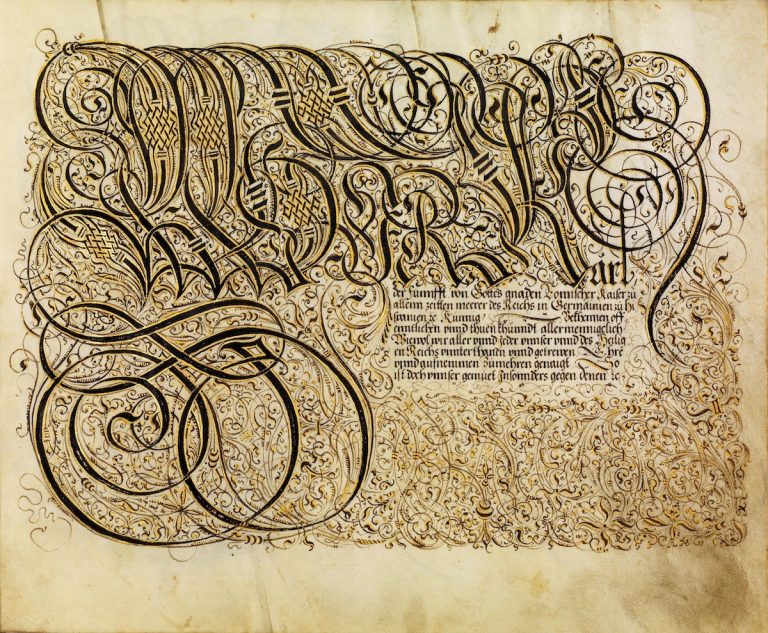 arl
der Fumfft von Gottes gnaden Romischer Kaiser zu
allenn zeitten merer des Reichs in Germainien zu Hi
spannien ꝛc Kunnig Bekhennen off
enntlichen vnnd thuen khunndt allermenngclich
Wiewol wir aller vnnd jeder vnnser vnnd des Heilig
en Reichs vnnterthanen vnnd getrewen Ehre
vnnd aufnemmen zumehren genaigt So
ist doch vnnser gemuet Insonnders gegen denen ꝛc